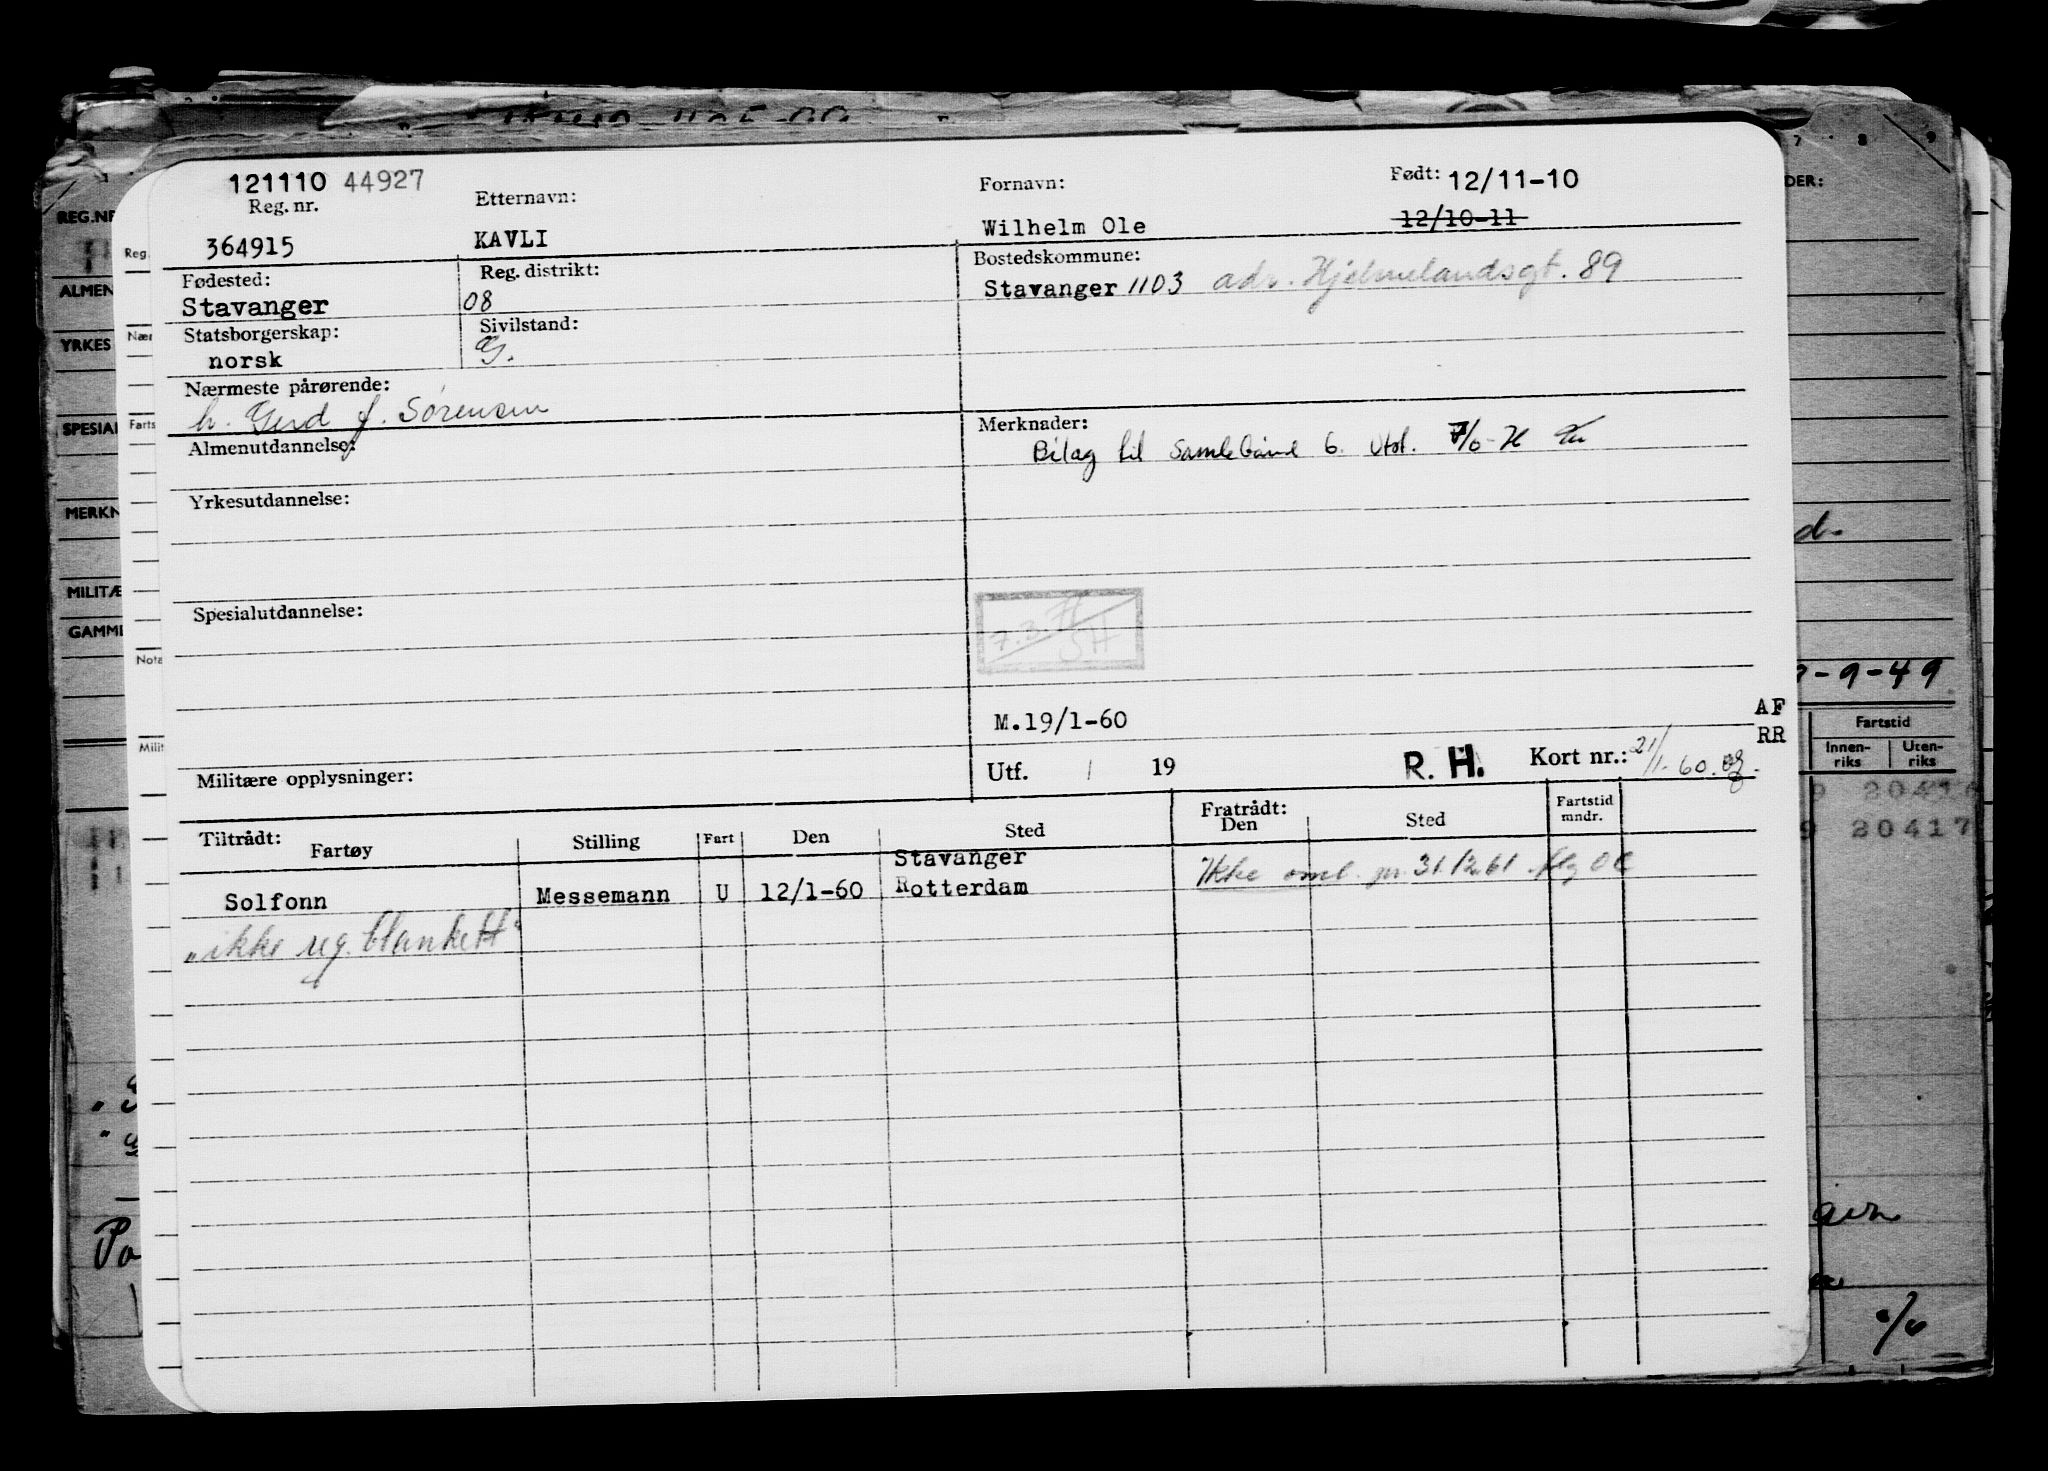 121110 44927
Reg. nr.
Etternavn:
Fornavn:
Født: 12/11-10
364915
KAVLI
Wilhelm Ole
12/10-11
Fødested:
Reg. distrikt:
Bostedskommune:
Stavanger
08
Stavanger 1103 adr. Hjelmelandsgt. 89
Statsborgerskap:
Sivilstand:
norsk
G.
Nærmeste pårørende:
h. Gerd f. Sørensen
Merknader:
Almenutdannelse:
Bilag til Samlebånd 6. Utst.
Yrkesutdannelse:
Spesialutdannelse:
7.3.
SH
M.19/1-60
AF
RR
Militære opplysninger:
Utf. / 19
R. H.
Kort nr.: 21/1-60.
Tiltrådt:
Fartøy
Stilling
Fart
Den
Sted
Fratrådt:
Den
Sted
Fartstid
mndr.
Stavanger
Solfonn
Messemann
U
12/1-60
Rotterdam
Ikke oml. pr. 31.12.61
„ikke reg. blankett"
REG.NR
ALMEN
YRKES
SPESIAL
MERKN
MILITÆ
GAMML
Reg.
Nær
Farts
Nota
Milit
7 8 9
DER:
d.
-9-49
Fartstid
Innen-
riks
Uten-
riks
20416
20417
Po